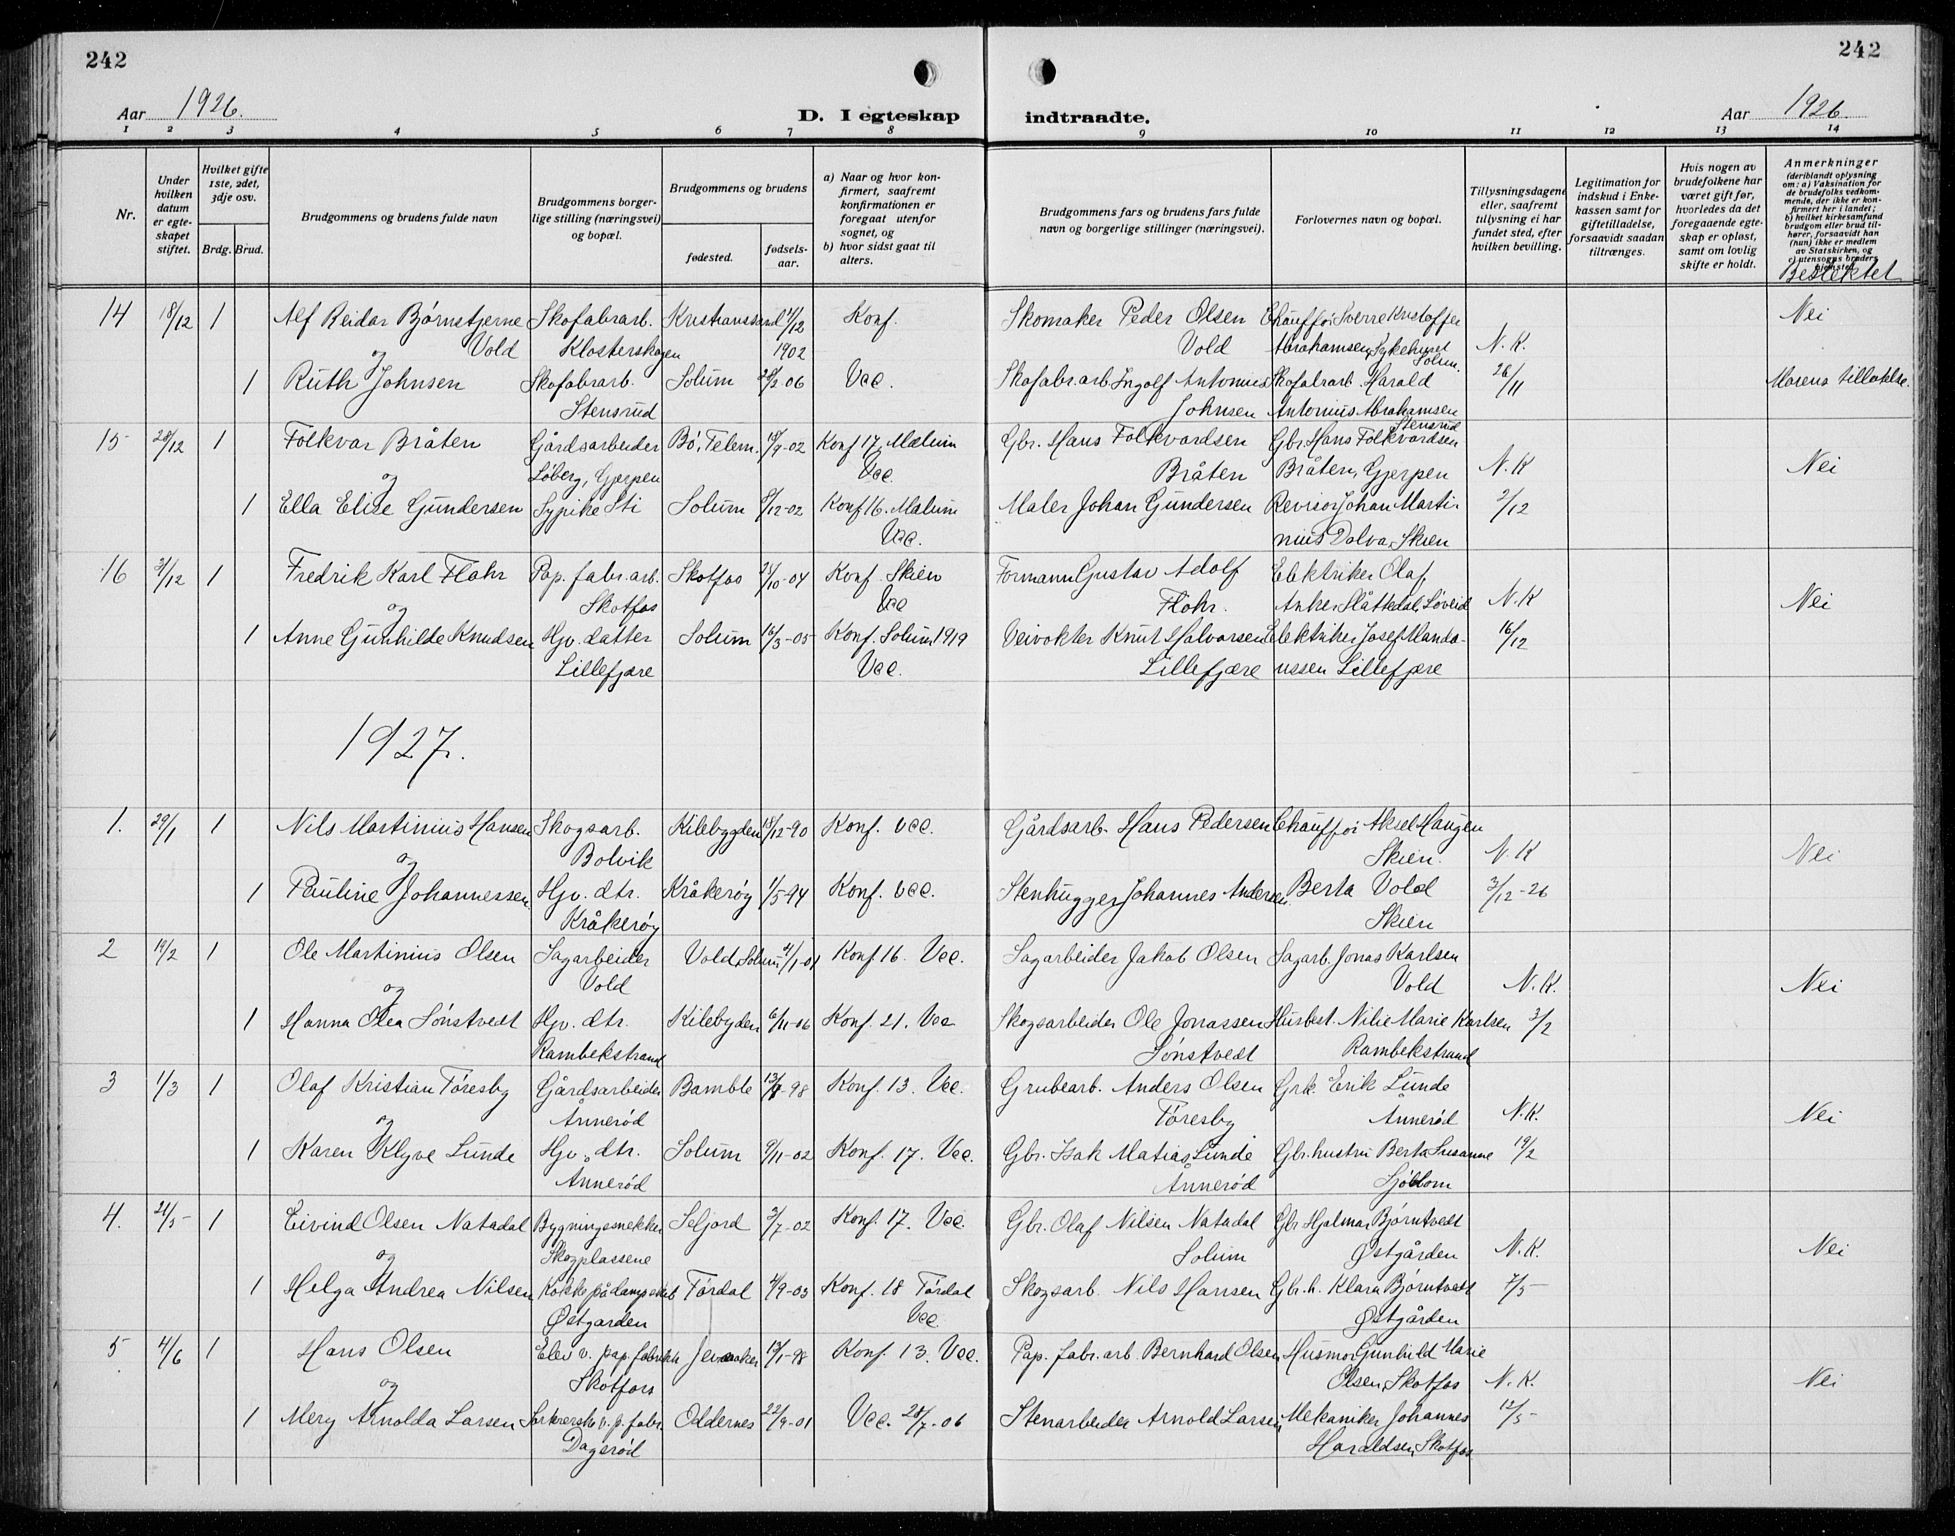 242
242
Aar 1926.
D. I egteskap
indtraadte.
Aar 1926.
1 2 3 4 5 6 7 8 9 10 11 12 13 14
Nr.
Under hvilken datum er egteskapet stiftet.
Hvilket gifte 1ste, 2det, 3dje osv.
Brdg. Brud.
Brudgommens og brudens fulde navn
Brudgommens borgerlige stilling (næringsvei) og bopæl.
Brudgommens og brudens
fødested.
fødselsaar.
a) Naar og hvor konfirmert, saafremt konfirmationen er foregaat utenfor sognet, og
b) hvor sidst gaat til alters.
Brudgommens fars og brudens fars fulde navn og borgerlige stillinger (næringsvei).
Forlovernes navn og bopæl.
Tillysningsdagene eller, saafremt tillysning ei har fundet sted, efter hvilken bevilling.
Legitimation for indskud i Enkekassen samt for giftetilladelse, forsaavidt saadan tiltrænges.
Hvis nogen av brudefolkene har været gift før, hvorledes da det foregaaende egteskap er opløst, samt om lovlig skifte er holdt.
Anmerkninger
(deriblandt oplysning om: a) Vaksination for de brudefolks vedkommende, der ikke er konfirmert her i landet; b) hvilket kirkesamfund brudgom eller brud tilhører, forsaavidt han (hun) ikke er medlem av Statskirken, og
Beslektet
14 18/12 1 Alf Reidar Bjørnstjerne Skofabrarb. Kristianssand 17/12 Konf. Skomaker Peder Olsen Chauffør Sverre Kristoffer Nei
og Vold Klosterskogen 1902 Vold Abrahamsen, Sykehuset Solum. N.K.
1 Ruth Johnsen Skofabrarb. Solum 28/2-06 Vcc. Skofabr.arb Ingolf Antonius Skofabrarb. Harald 26/11 Morens tillatelse.
Stensrud Johnsen Antonius Abrahamsen Stensrud
15 28/12 1 Folkvar Bråten Gårdsarbeider Bø, Telem. 18/9-02 Konf 17, Mælum Gbr. Hans Folkvardsen Gbr. Hans Folkvardsen
og Løberg, Gjerpen Vcc. Bråten Bråten, Gjerpen N.K Nei
1 Ella Elise Gundersen Sypike Sti Solum 8/12-02 Konf 16. Mælum Maler Johan Gundersen Revisor Johan Marti- 2/12
Vcc. nius Dalva, Skien
16 31/12 1 Fredrik Karl Flohr Pap. fabr. arb. Skotfos 24/10-04 Konf. Skien Formann Gustav Adolf Elektriker Olaf
og Skotfos Vcc Flohr. Anker Slåttedal, Løveid N.K Nei
1 Anne Gunhilde Knudsen Hjv. datter Solum 16/3-05 Konf. Solum 1919 Veivokter Knut Halvorsen Elektriker Josef Manda- 16/12
Lillefjære Vcc. Lillefjære ussen Lillefjære
1927.
1. 29/1 1 Nils Martinius Hansen Skogsarb. Kilebygden 18/12-90 Konf. Vcc. Gårdsarb. Hans Pedersen Chauffør Aksel Haugen
og Bolvik Skien. N.K Nei
1 Pauline Johannessen Hjv. dtr. Kråkerøy 1/5-94 Konf. Vcc. Stenhugger Johannes Andersen Berta Vold 3/12-26
Kråkerøy Skien
2 19/2 1 Ole Martinius Olsen Sagarbeider Vold, Solum 21/1-01 Konf 16. Vcc. Sagarbeider Jakob Olsen Sagarb. Jonas Karlsen
og Vold Vold N.K. Nei
1 Hanna Olea Sønstvedt Hjv. dtr. Kilebyden 6/11-06 Konf. 21. Vcc Skogsarbeider Ole Jonassen Husbest. Nilie Marie Karlsen 3/2
Rambekstrand Sønstvedt Rambekstrand
3 1/3 1 Olaf Kristian Tøresby Gårdsarbeider Bamble 13/8-98 Konf. 13. Vcc. Grubearb. Anders Olsen Grk. Erik Lunde
og Ånnerød Tøresby Ånnerød N.K. Nei
1 Karen Klyve Lunde Hjv. dtr. Solum 9/11-02 Konf. 17. Vcc. Gbr. Isak Matias Lunde Gbr. hustru Berta Susanne 19/2
Annerød Ånnerød Sjøblom
4. 21/5- 1 Eivind Olsen Natadal Bygningssnekker Seljord 3/7-02 Konf. 17. Vcc. Gbr. Olaf Nilsen Natadal Gbr Hjalmar Bjørntvedt
og Skogplassene Solum Østgården N.K. Nei
1 Helga Andrea Nilsen Kokke på dampskib Tørdal 4/9-03 Konf. 18 Tørdal Skogsarb. Nils Hansen Gbr. h. Klara Bjørntvedt 7/5-
Østgarden Vcc. Østgården
5 4/6 1 Hans Olsen Elev v. pap. fabrikk Jevnaker 13/1-98 Konf. 13. Vcc. Pap. fabr. arb Bernhard Olsen Husmor Gunhild Marie
og Skotfoss Olsen, Skotfos N.K. Nei
1 Mery Arnolda Larsen v. p. fabr. Oddernes 22/9-01 Vcc. 28/7-06 Stenarbeider Arnold Larsen Mekaniker Johannes 12/5-
Dagsrød Haraldsen, Skotfos